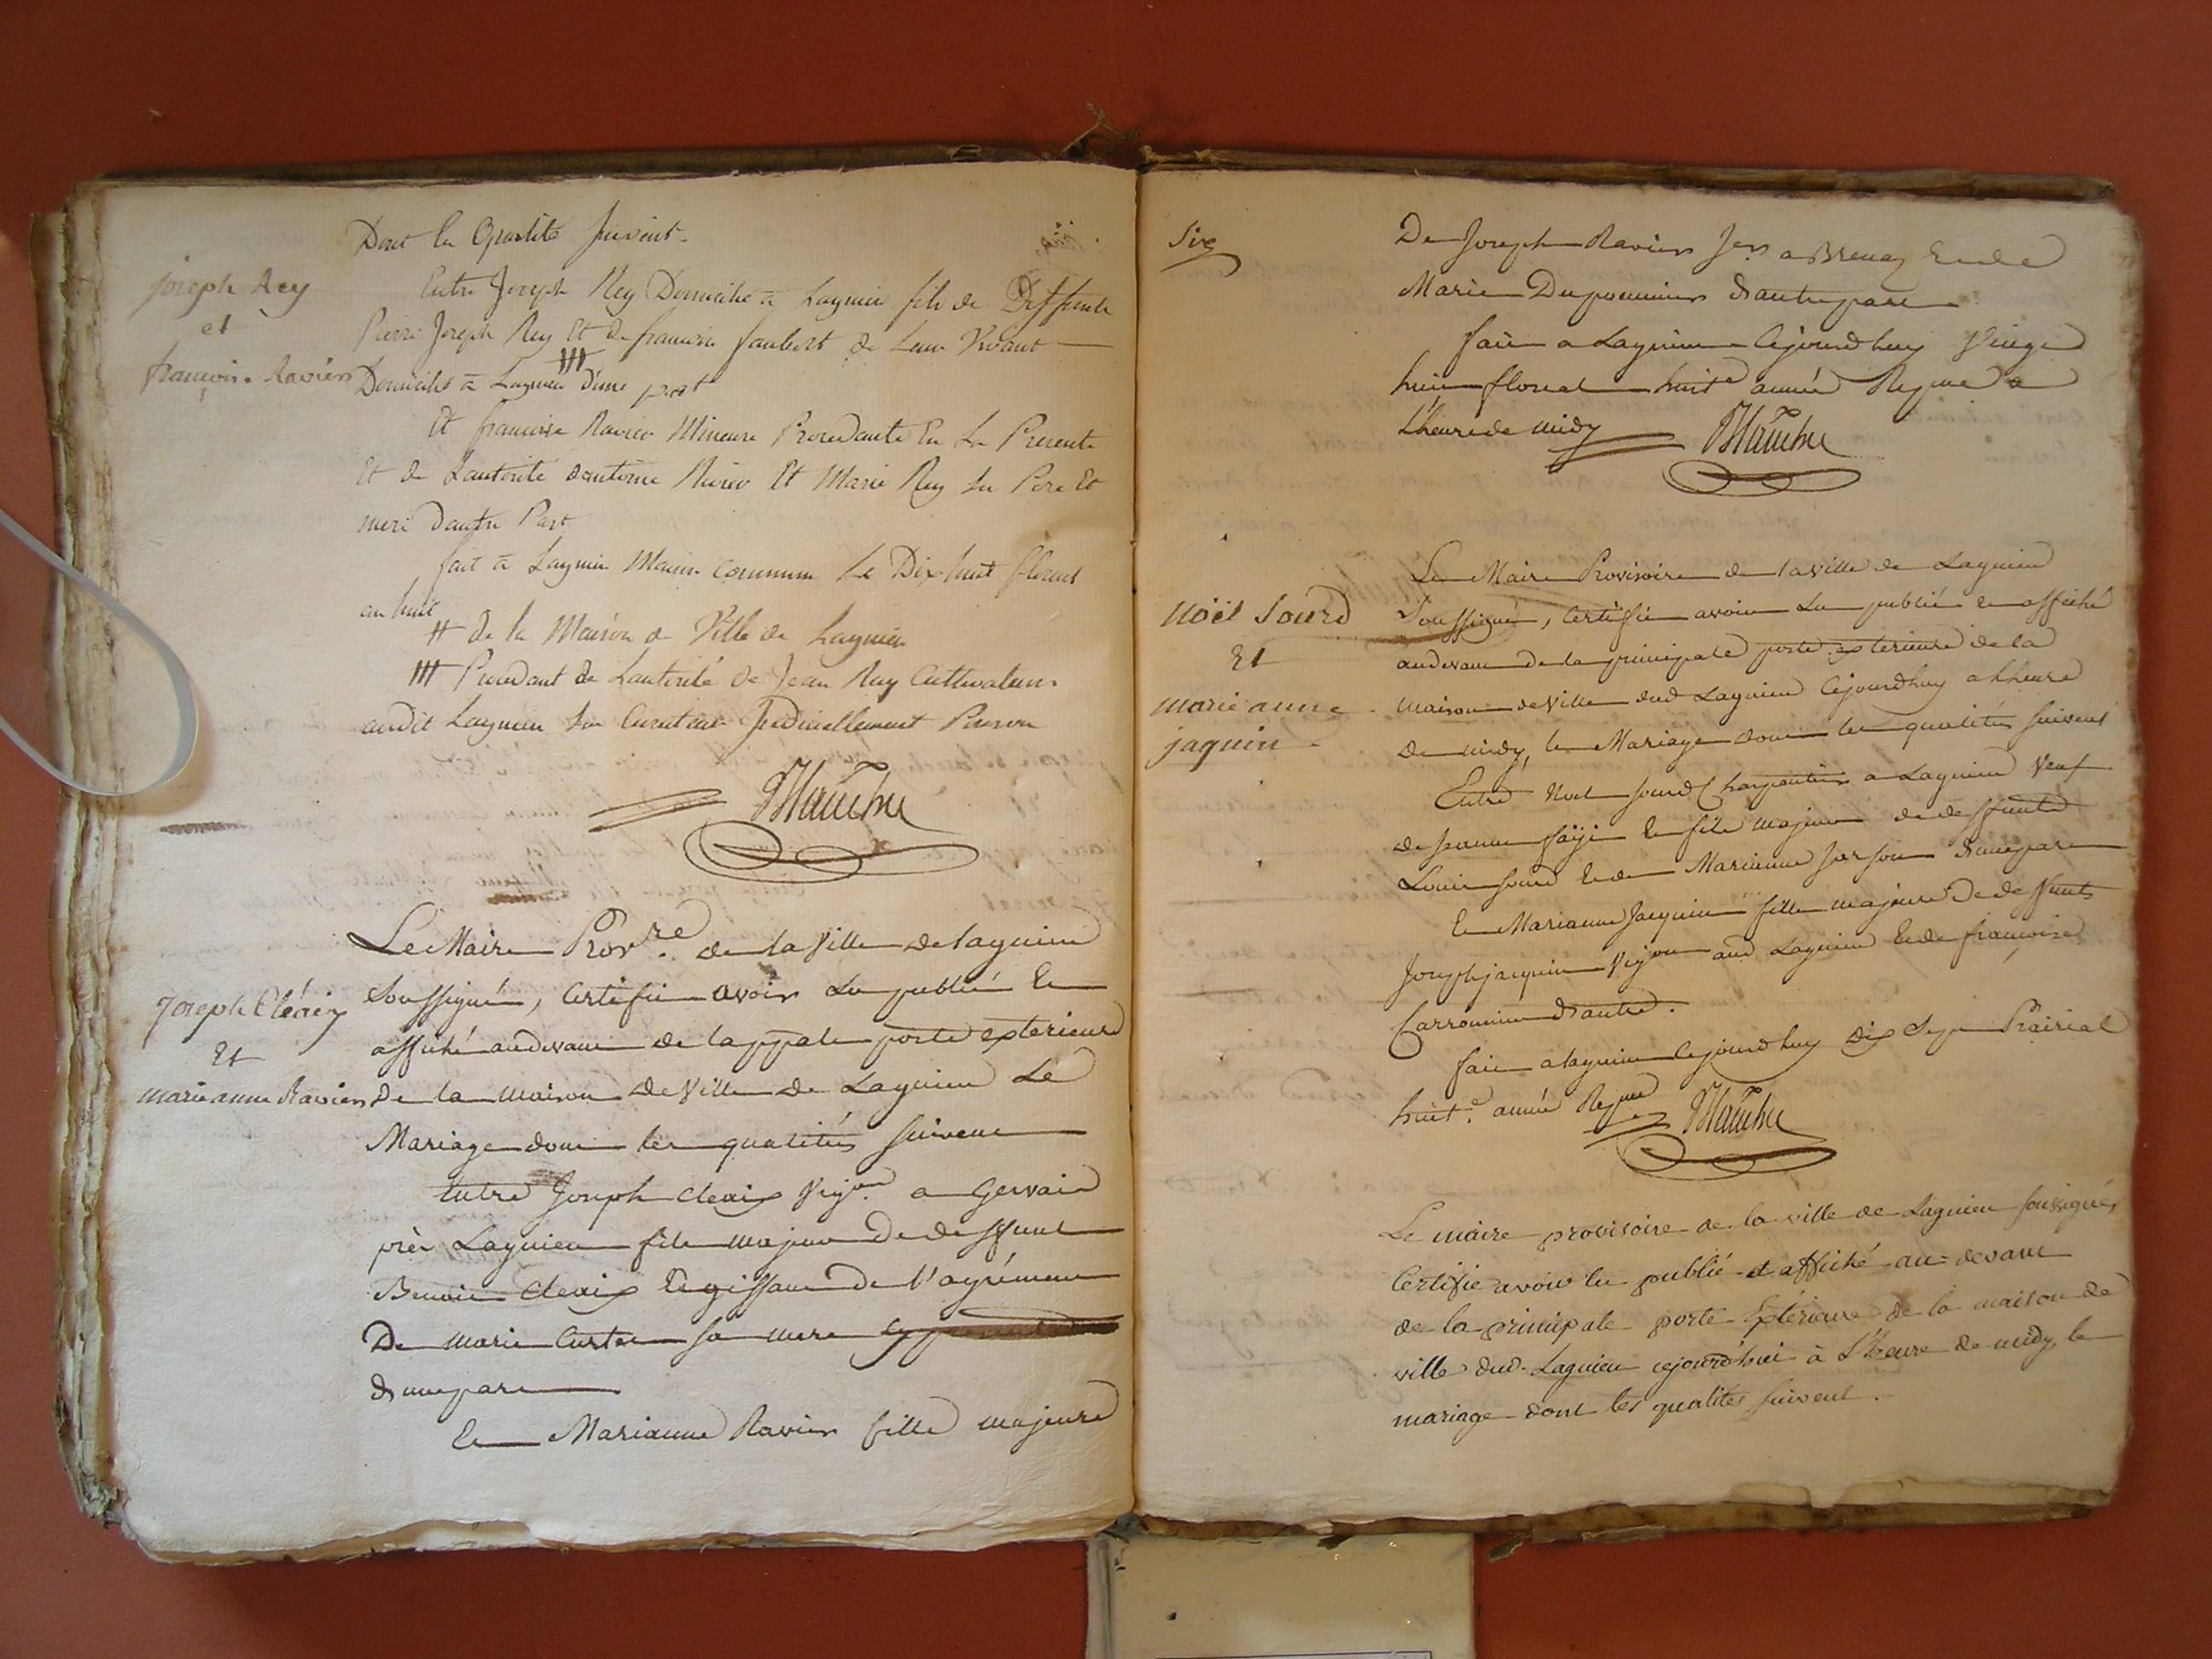 Dont les Qualités suivent.
joseph Rey
et
françoise Ravier
Entre Joseph Rey Domicilié à Lagnieu fils de Deffunts
Pierre Joseph Rey Et de francoise Jaubert de Leur Vivant
Domicilié à Lagnieu ╫ d'une part
Et francoise Ravier Mineure Procedante En La Presente
Et de Lautorité dantoine Ravier Et Marie Rey Ses Pere Et
mere Dautre Part
fait à Lagnieu Maison commune Le Dix huit floreal
an huit
# de la Maison de Ville de Lagnieu
Procedant de Lautorité de Jean Rey Cultivateur
audit Lagnieu Son Curateur
Joseph Cléaix
Et
marie anne Ravier
Le Maire Prov.re de la Ville de lagnieu
Soussigné, Certifie avoir Lu publié Et
affiché audevant de la ppale porte exterieure
De la maison de Ville de Lagnieu Le
Mariage dont les qualités suivent
Entre Joseph Cleaix Vig.on a Gervais
près Lagnieu fils majeur De deffunt
Benoit Cleaix Et gissant de l'agrément
De marie Curtet sa mere
d'une part
Et Marianne Ravier fille majeure
Six
De Joseph Ravier a Brenaz Et de
Marie Duponnier d'autre part
fait a Lagnieu Cejourdhuy Vingt
huit floreal huit.e année Repue a
L'heure de midy
noël Sourd
Et
marie anne
jaquin
Le Maire Provisoire de la Ville de Lagnieu
Soussigné, Certifie avoir Lu publié et affiché
audevant de la principale porte exterieure de la
maison de Ville dud Lagnieu Cejourdhuy a lheure
de midy, le Mariage dont les qualités suivent
Entre Noel Sourd Charpentier a Lagnieu Veuf
de Jeanne Et fils majeur de deffunts
Louis Sourd Et de Marianne d'une part
Et Marianne Jacquin fille majeure De deffunts
Joseph jacquin Vig.on aud Lagnieu Et de françoise
d'autre.
fait a lagnieu Cejourdhuy Dix Sept Prairial
huit.e année Repue
Le maire provisoire de la ville de Lagnieu soussigné,
Certifie avoir lu publié et affiché au-devant
de la principale porte Extérieure de la maison de
ville dud. Lagnieu cejourd'hui à L'heure de midy, le
mariage dont les qualités suivent.